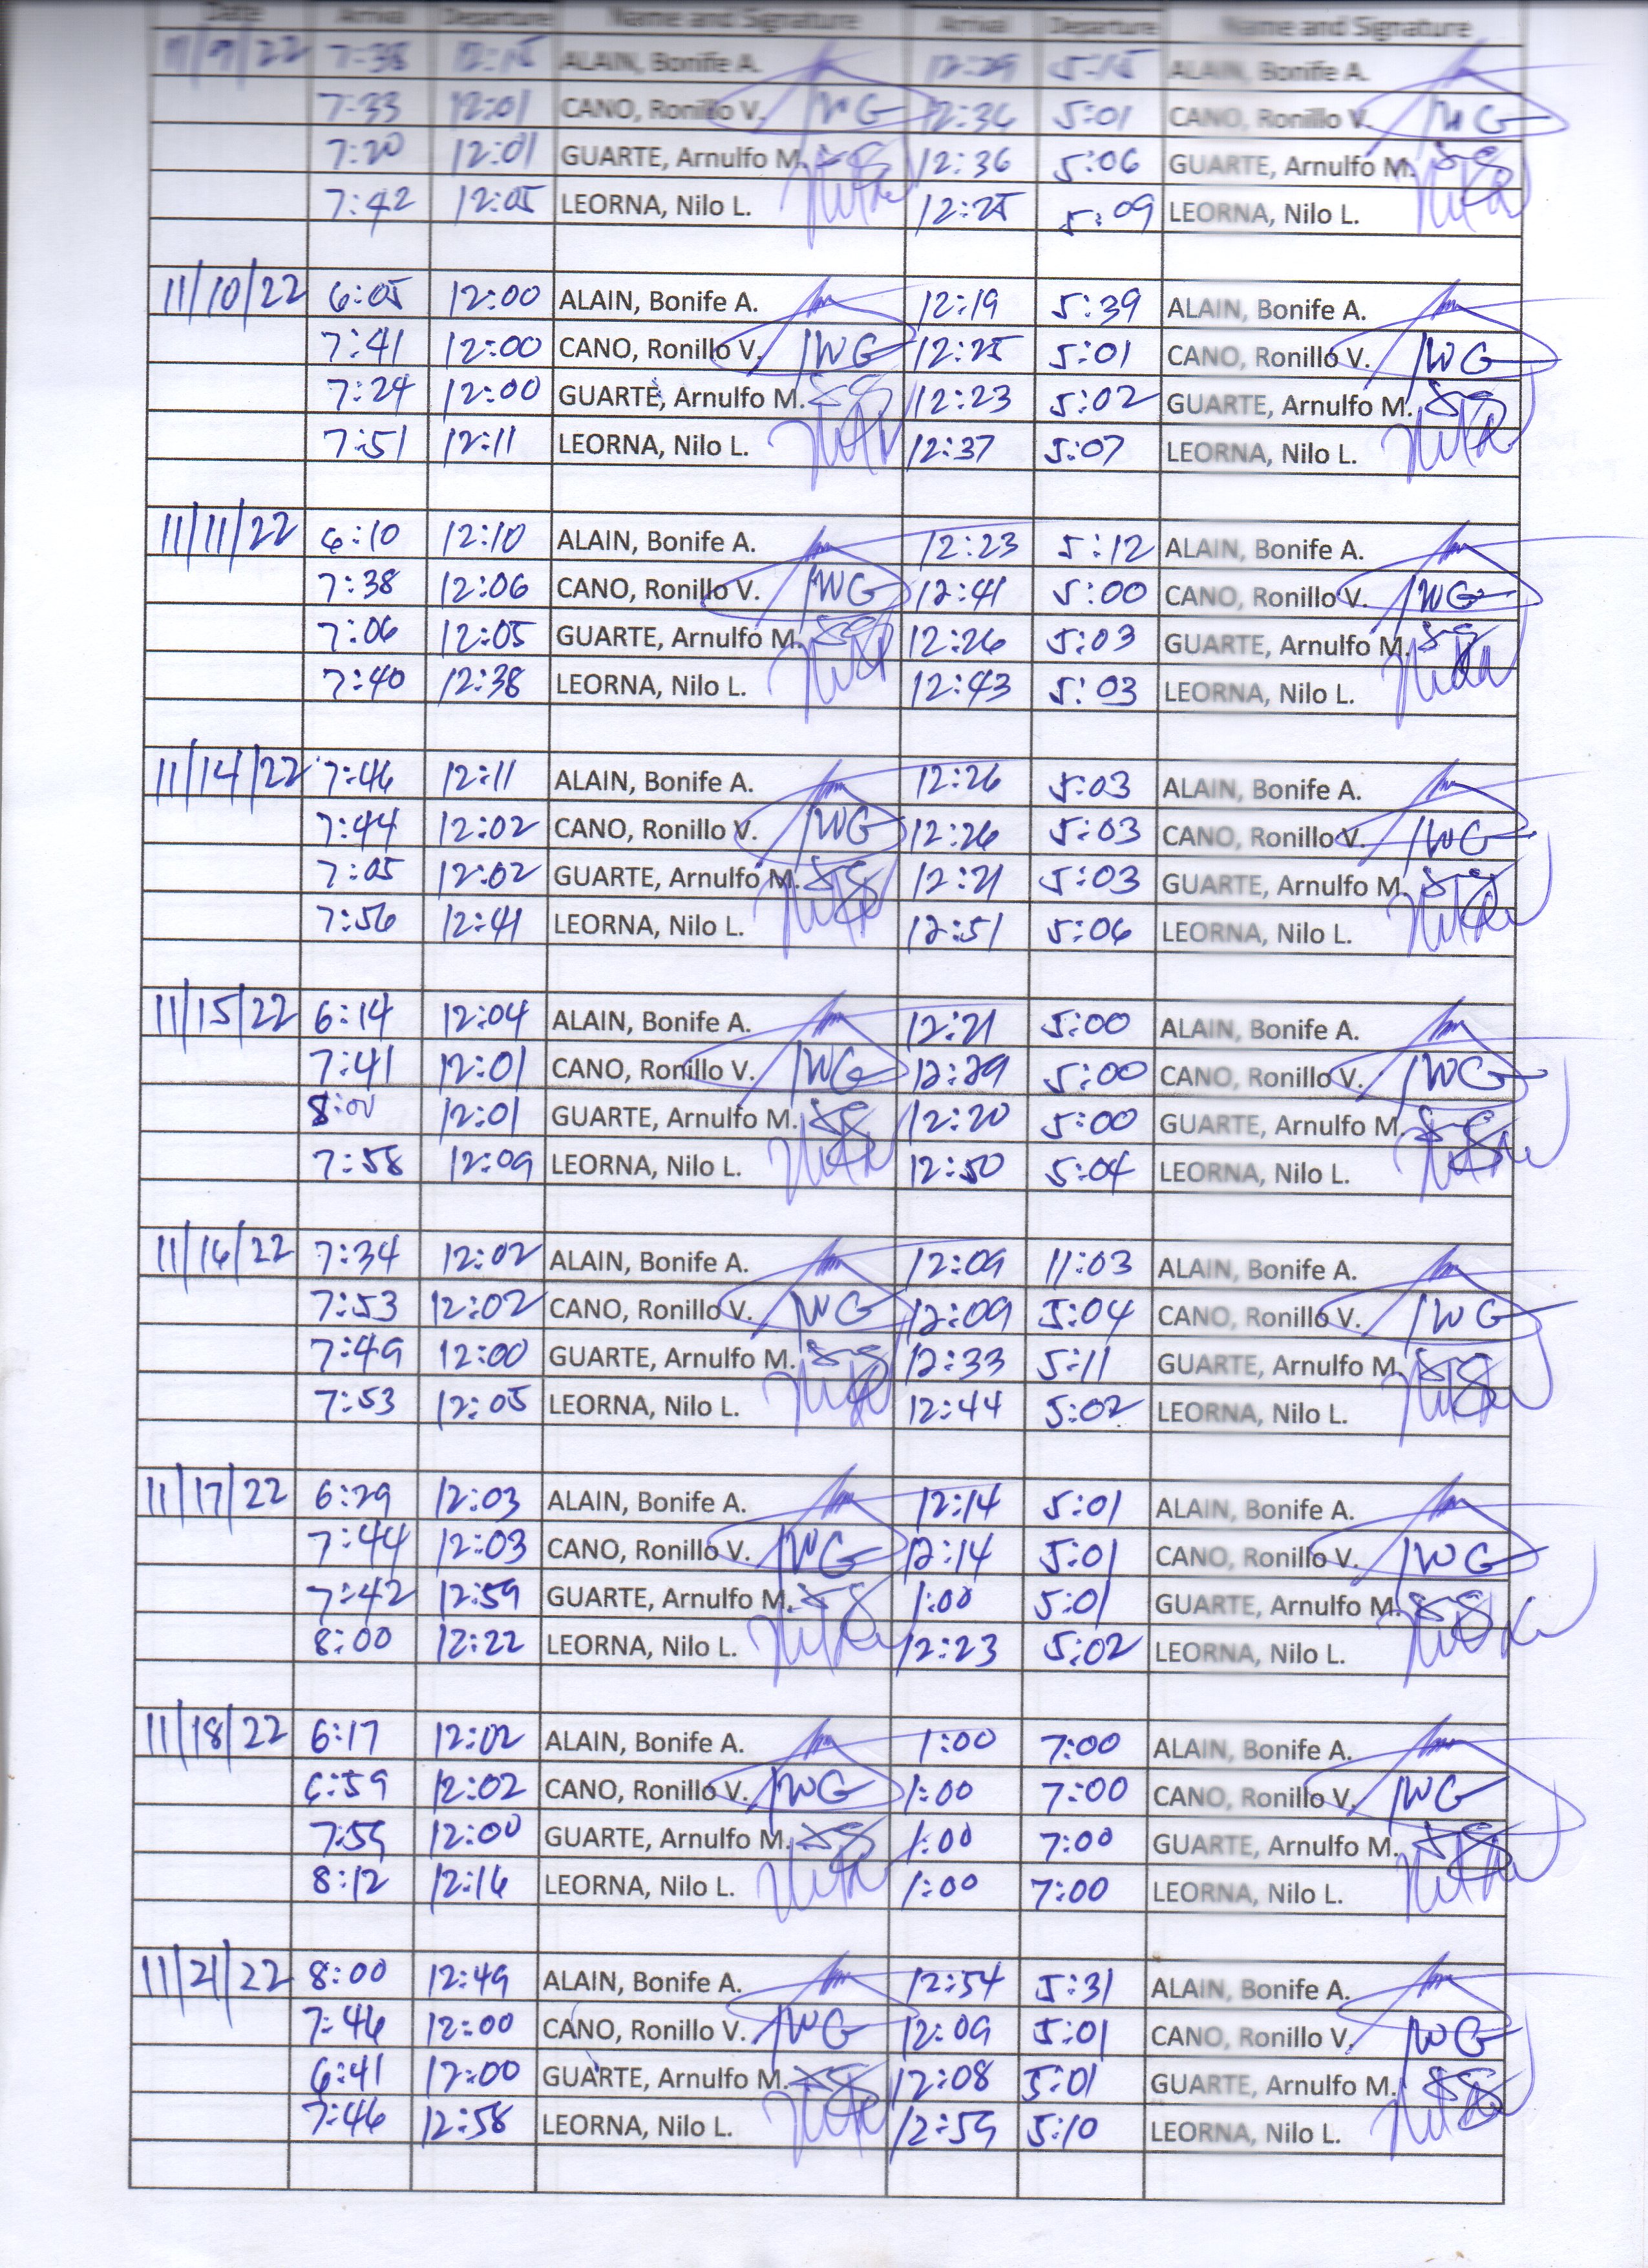 Date Arrival Departure Name and Signature Arrival Departure Name and Signature
11/9/22 7:38 12:15 ALAIN, Bonife A. 12:29 5:15 ALAIN, Bonife A.
7:33 12:01 CANO, Ronillo V. 12:36 5:01 CANO, Ronillo V.
7:20 12:01 GUARTE, Arnulfo M. 12:36 5:06 GUARTE, Arnulfo M.
7:42 12:05 LEORNA, Nilo L. 12:25 5:09 LEORNA, Nilo L.
11/10/22 6:05 12:00 ALAIN, Bonife A. 12:19 5:39 ALAIN, Bonife A.
7:41 12:00 CANO, Ronillo V. 12:25 5:01 CANO, Ronillo V.
7:24 12:00 GUARTE, Arnulfo M. 12:23 5:02 GUARTE, Arnulfo M.
7:51 12:11 LEORNA, Nilo L. 12:37 5:07 LEORNA, Nilo L.
11/11/22 6:10 12:10 ALAIN, Bonife A. 12:23 5:12 ALAIN, Bonife A.
7:38 12:06 CANO, Ronillo V. 12:41 5:00 CANO, Ronillo V.
7:06 12:05 GUARTE, Arnulfo M. 12:26 5:03 GUARTE, Arnulfo M.
7:40 12:38 LEORNA, Nilo L. 12:43 5:03 LEORNA, Nilo L.
11/14/22 7:46 12:11 ALAIN, Bonife A. 12:26 5:03 ALAIN, Bonife A.
7:44 12:02 CANO, Ronillo V. 12:26 5:03 CANO, Ronillo V.
7:05 12:02 GUARTE, Arnulfo M. 12:21 5:03 GUARTE, Arnulfo M.
7:56 12:41 LEORNA, Nilo L. 12:51 5:06 LEORNA, Nilo L.
11/15/22 6:14 12:04 ALAIN, Bonife A. 12:21 5:00 ALAIN, Bonife A.
7:41 12:01 CANO, Ronillo V. 12:29 5:00 CANO, Ronillo V.
8:00 12:01 GUARTE, Arnulfo M. 12:20 5:00 GUARTE, Arnulfo M.
7:58 12:09 LEORNA, Nilo L. 12:50 5:04 LEORNA, Nilo L.
11/16/22 7:34 12:02 ALAIN, Bonife A. 12:09 11:03 ALAIN, Bonife A.
7:53 12:02 CANO, Ronillo V. 12:09 5:04 CANO, Ronillo V.
7:49 12:00 GUARTE, Arnulfo M. 12:33 5:11 GUARTE, Arnulfo M.
7:53 12:05 LEORNA, Nilo L. 12:44 5:02 LEORNA, Nilo L.
11/17/22 6:29 12:03 ALAIN, Bonife A. 12:14 5:01 ALAIN, Bonife A.
7:44 12:03 CANO, Ronillo V. 12:14 5:01 CANO, Ronillo V.
7:42 12:59 GUARTE, Arnulfo M. 1:00 5:01 GUARTE, Arnulfo M.
8:00 12:22 LEORNA, Nilo L. 12:23 5:02 LEORNA, Nilo L.
11/18/22 6:17 12:02 ALAIN, Bonife A. 1:00 7:00 ALAIN, Bonife A.
6:59 12:02 CANO, Ronillo V. 1:00 7:00 CANO, Ronillo V.
7:59 12:00 GUARTE, Arnulfo M. 1:00 7:00 GUARTE, Arnulfo M.
8:12 12:16 LEORNA, Nilo L. 1:00 7:00 LEORNA, Nilo L.
11/21/22 8:00 12:49 ALAIN, Bonife A. 12:54 5:31 ALAIN, Bonife A.
7:46 12:00 CANO, Ronillo V. 12:09 5:01 CANO, Ronillo V.
6:41 12:00 GUARTE, Arnulfo M. 12:08 5:01 GUARTE, Arnulfo M.
7:46 12:58 LEORNA, Nilo L. 12:59 5:10 LEORNA, Nilo L.